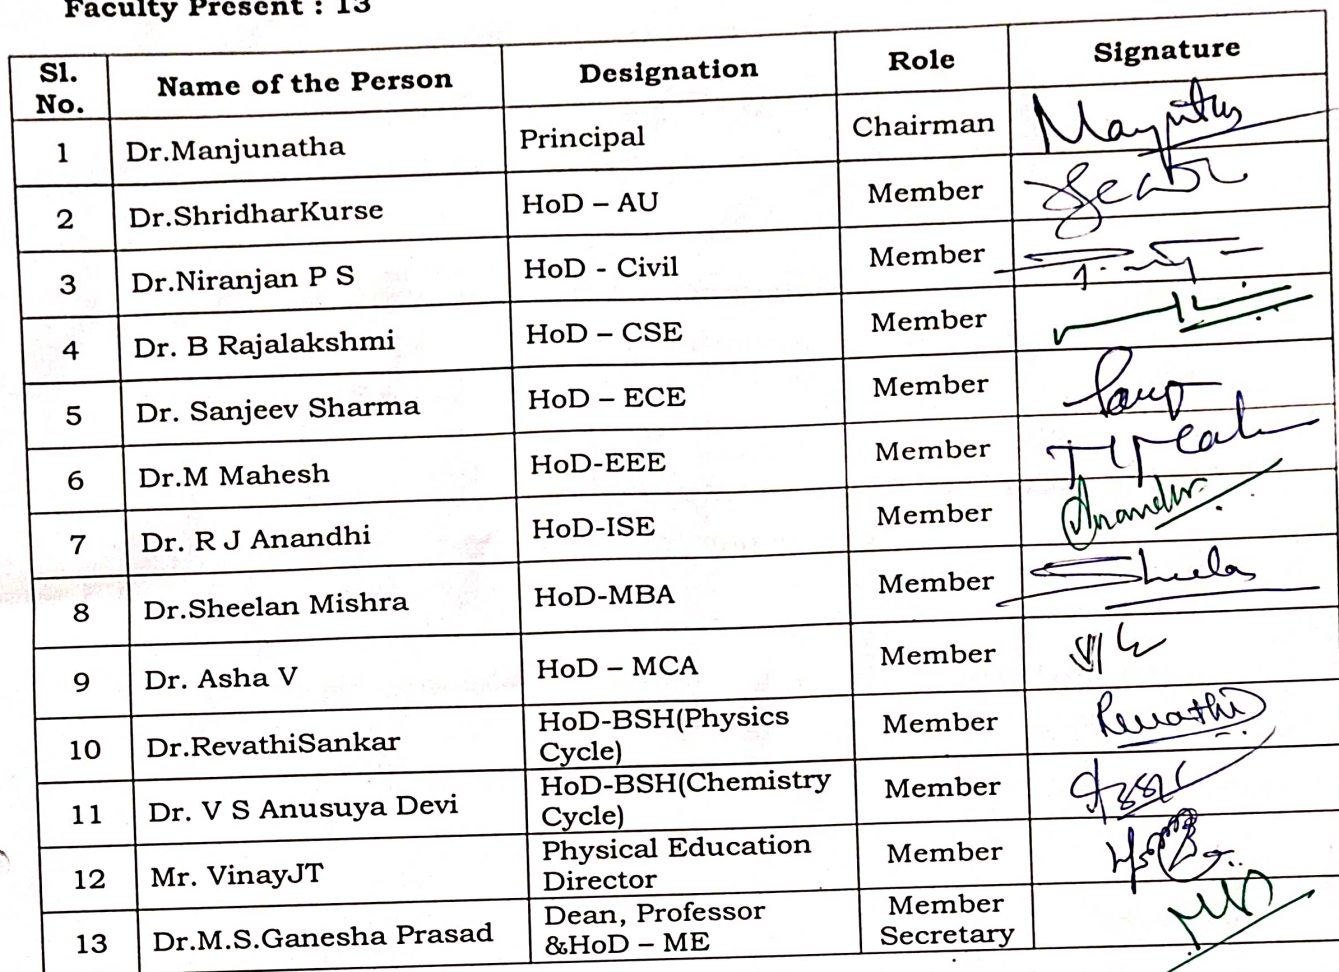 Faculty Present : 13
Sl. No. Name of the Person Designation Role Signature
1 Dr.Manjunatha Principal Chairman
2 Dr.ShridharKurse HoD – AU Member
3 Dr.Niranjan P S HoD - Civil Member
4 Dr. B Rajalakshmi HoD – CSE Member
5 Dr. Sanjeev Sharma HoD – ECE Member
6 Dr.M Mahesh HoD-EEE Member
7 Dr. R J Anandhi HoD-ISE Member
8 Dr.Sheelan Mishra HoD-MBA Member
9 Dr. Asha V HoD – MCA Member
10 Dr.RevathiSankar HoD-BSH(Physics Cycle) Member Revathi
11 Dr. V S Anusuya Devi HoD-BSH(Chemistry Cycle) Member
12 Mr. VinayJT Physical Education Director Member
13 Dr.M.S.Ganesha Prasad Dean, Professor &HoD – ME Member Secretary